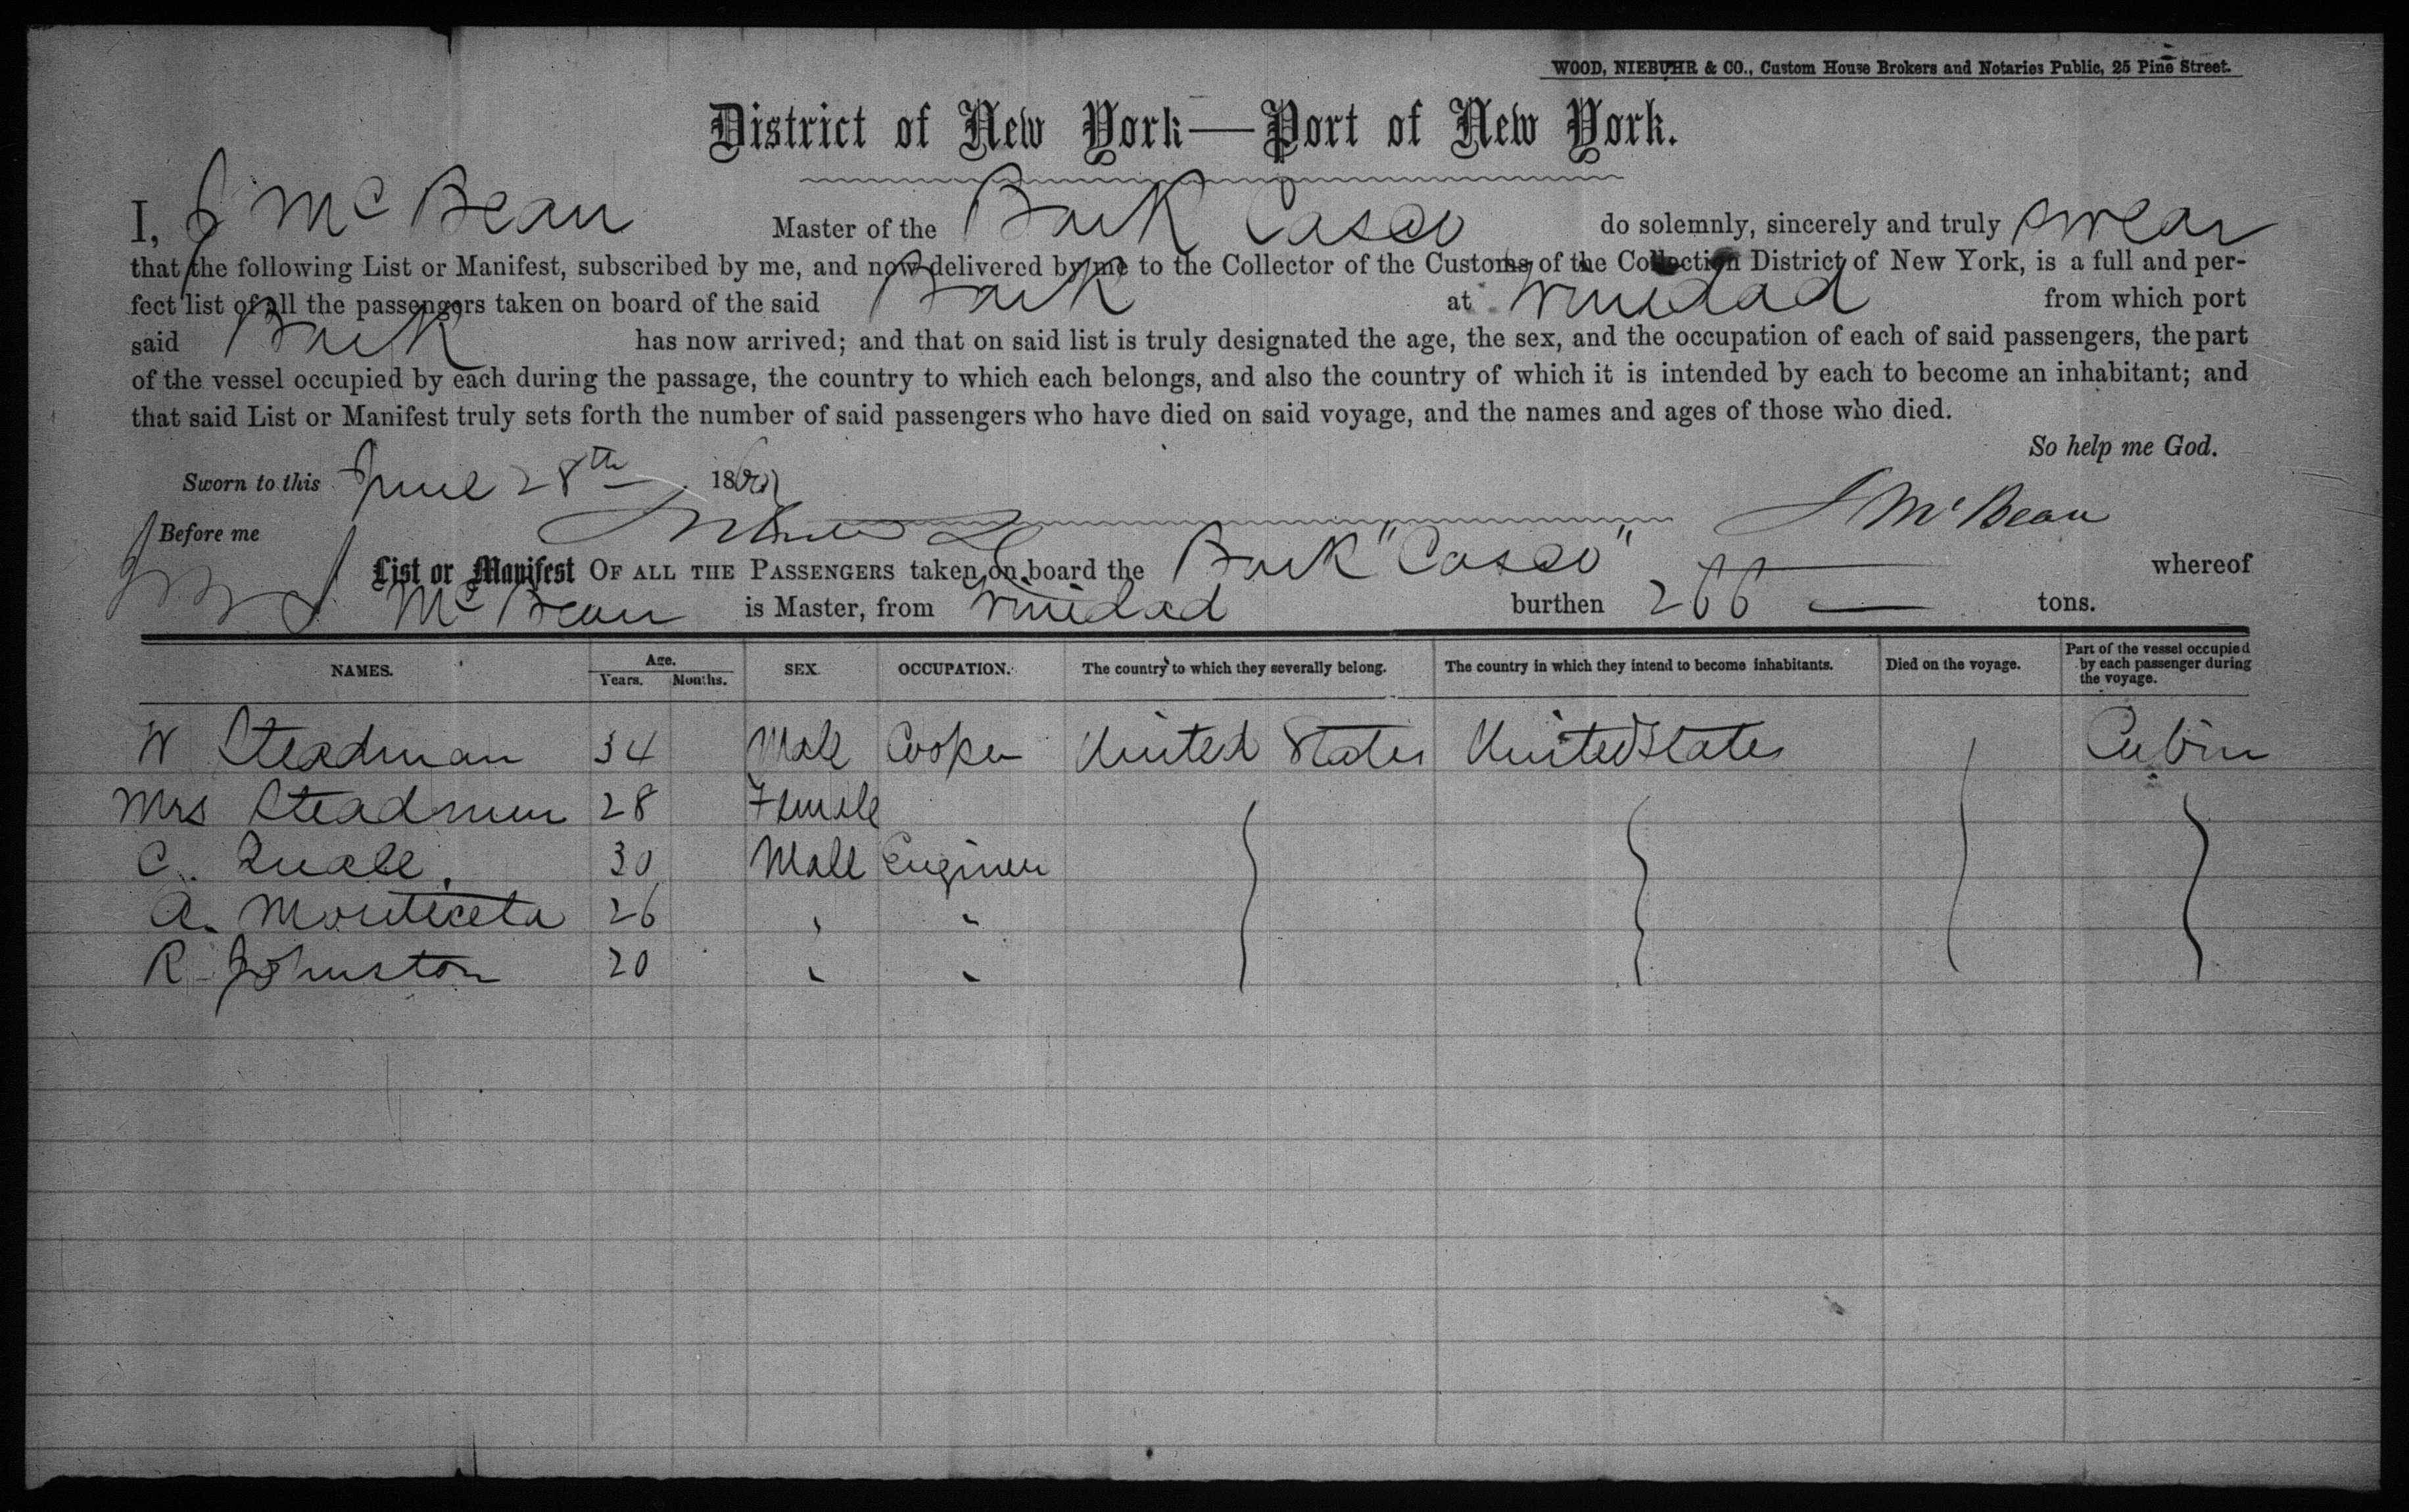 WOOD, NIEBUHR & CO., Custom House Brokers and Notaries Public, 25 Pine Street.
District of New York—Port of New York.
I, J McBean Master of the Bark Casco do solemnly, sincerely and truly swear
that the following List or Manifest, subscribed by me, and now delivered by me to the Collector of the Customs of the Collection District of New York, is a full and per-
fect list of all the passengers taken on board of the said Bark at Trinidad from which port
said Bark has now arrived; and that on said list is truly designated the age, the sex, and the occupation of each of said passengers, the part
of the vessel occupied by each during the passage, the country to which each belongs, and also the country of which it is intended by each to become an inhabitant; and
that said List or Manifest truly sets forth the number of said passengers who have died on said voyage, and the names and ages of those who died.
So help me God.
Sworn to this June 28th 186
J McBean
Before me
List or Manifest OF ALL THE PASSENGERS taken on board the Bark "Casco" whereof
J McBean is Master, from Trinidad burthen 266 tons.
NAMES. Age. Years. Months. SEX. OCCUPATION. The country to which they severally belong. The country in which they intend to become inhabitants. Died on the voyage. Part of the vessel occupied by each passenger during the voyage.
W Steadman 34 Male Cooper United States United States Cabin
Mrs Steadman 28 Female
C. Quale. 30 Male Engineer
A. 26 " "
R Johnston 20 " "